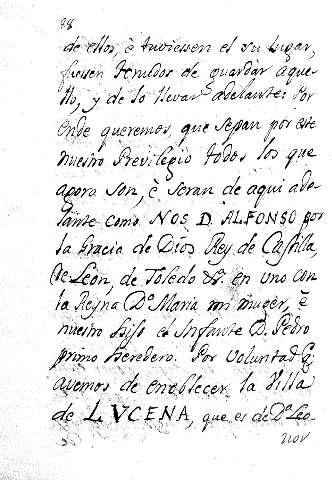 98
de ellos, è tuviessen el su lugar,
fuessen tenudos de guardar aque-
llo, y de lo llevar adelante: Por
Onde queremos, que sepan por este
nuestro Previlegio todos los que
agora son, è seran de aqui ade-
lante como NOS D. ALFONSO por
la Gracia de Dios Rey de Castilla,
de Leon, de Toledo &. en uno con
la Reyna Dª Maria mi muger, è
nuestro Hijo el Infante D. Pedro
primo heredero. Por voluntad q̃
avemos de enoblecer la Villa
de LVCENA, que es de Dª Leo-
nor